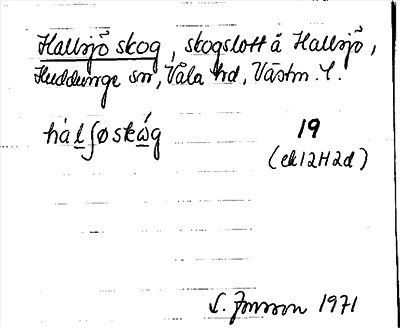 Hallsjö skog, skogslott å Hallsjö,
Huddunge sn, Våla hd, Västm. l.
hàlʃøskẃg 19
(ek 12H2d)
S. Jonsson 1971